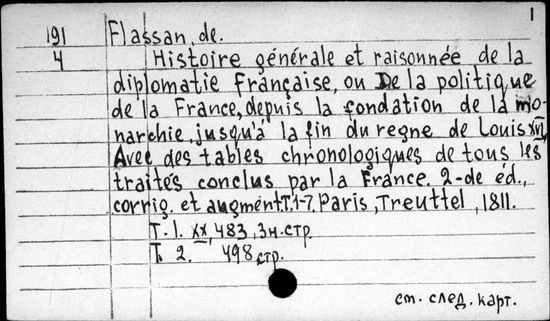 1
191 Flassan, de.
4 Histoire générale et raisonnée de la
diplomatie française, ou De la politique
de la France, depuis la fondation de la mo-
narchie, jusqu'à la fin du regne de Louis XVI,
Avec des tables chronologiques de tous les
traités conclus par la France. 2-de éd.,
corrig. et augment. T.1-7. Paris, Treuttel, 1811.
T. 1. XX, 483, 3 н. стр.
T. 2. 498 стр.
см. след. карт.